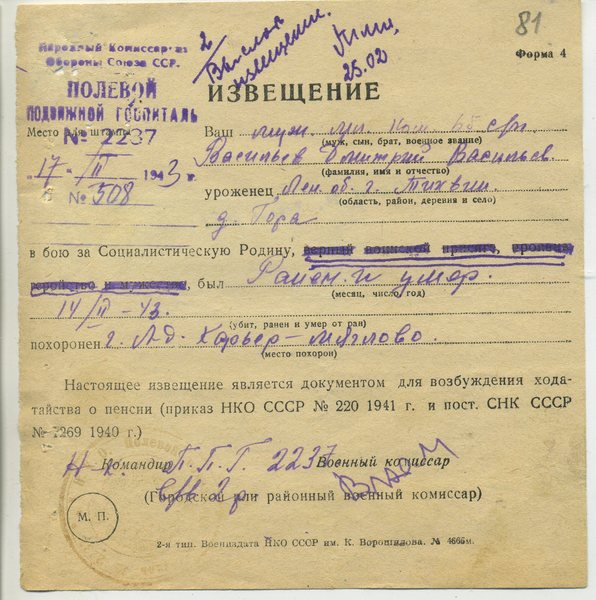 81
2
извещение.
25.02
Форма 4
Народный Комиссариат
Обороны Союза ССР.
ПОЛЕВОЙ
ПОДВИЖНОЙ ГОСПИТАЛЬ
ИЗВЕЩЕНИЕ
Место для штампа
№ 2237
Ваш муж
(муж, сын, брат, военное звание)
17 II 1943 г.
Васильев Дмитрий Васильев.
(фамилия, имя и отчество)
№ 508
уроженец Лен. об. г. Тихвин
(область, район, деревня и село)
д. Гора
в бою за Социалистическую Родину, верный воинской присяге, проявив
геройство и мужество, был Ранен и умер.
(месяц, число, год)
14/II-43.
(убит, ранен и умер от ран)
похоронен г. Л-д. Карьер-Мяглово.
(место похорон)
Настоящее извещение является документом для возбуждения хода-
тайства о пенсии (приказ НКО СССР № 220 1941 г. и пост. СНК СССР
№ 1269 1940 г.)
Командир П.П.Г. 2237 Военный комиссар
(Городской или районный военный комиссар)
М. П.
2-я тип. Воениздата НКО СССР им. К. Ворошилова. № 4666м.